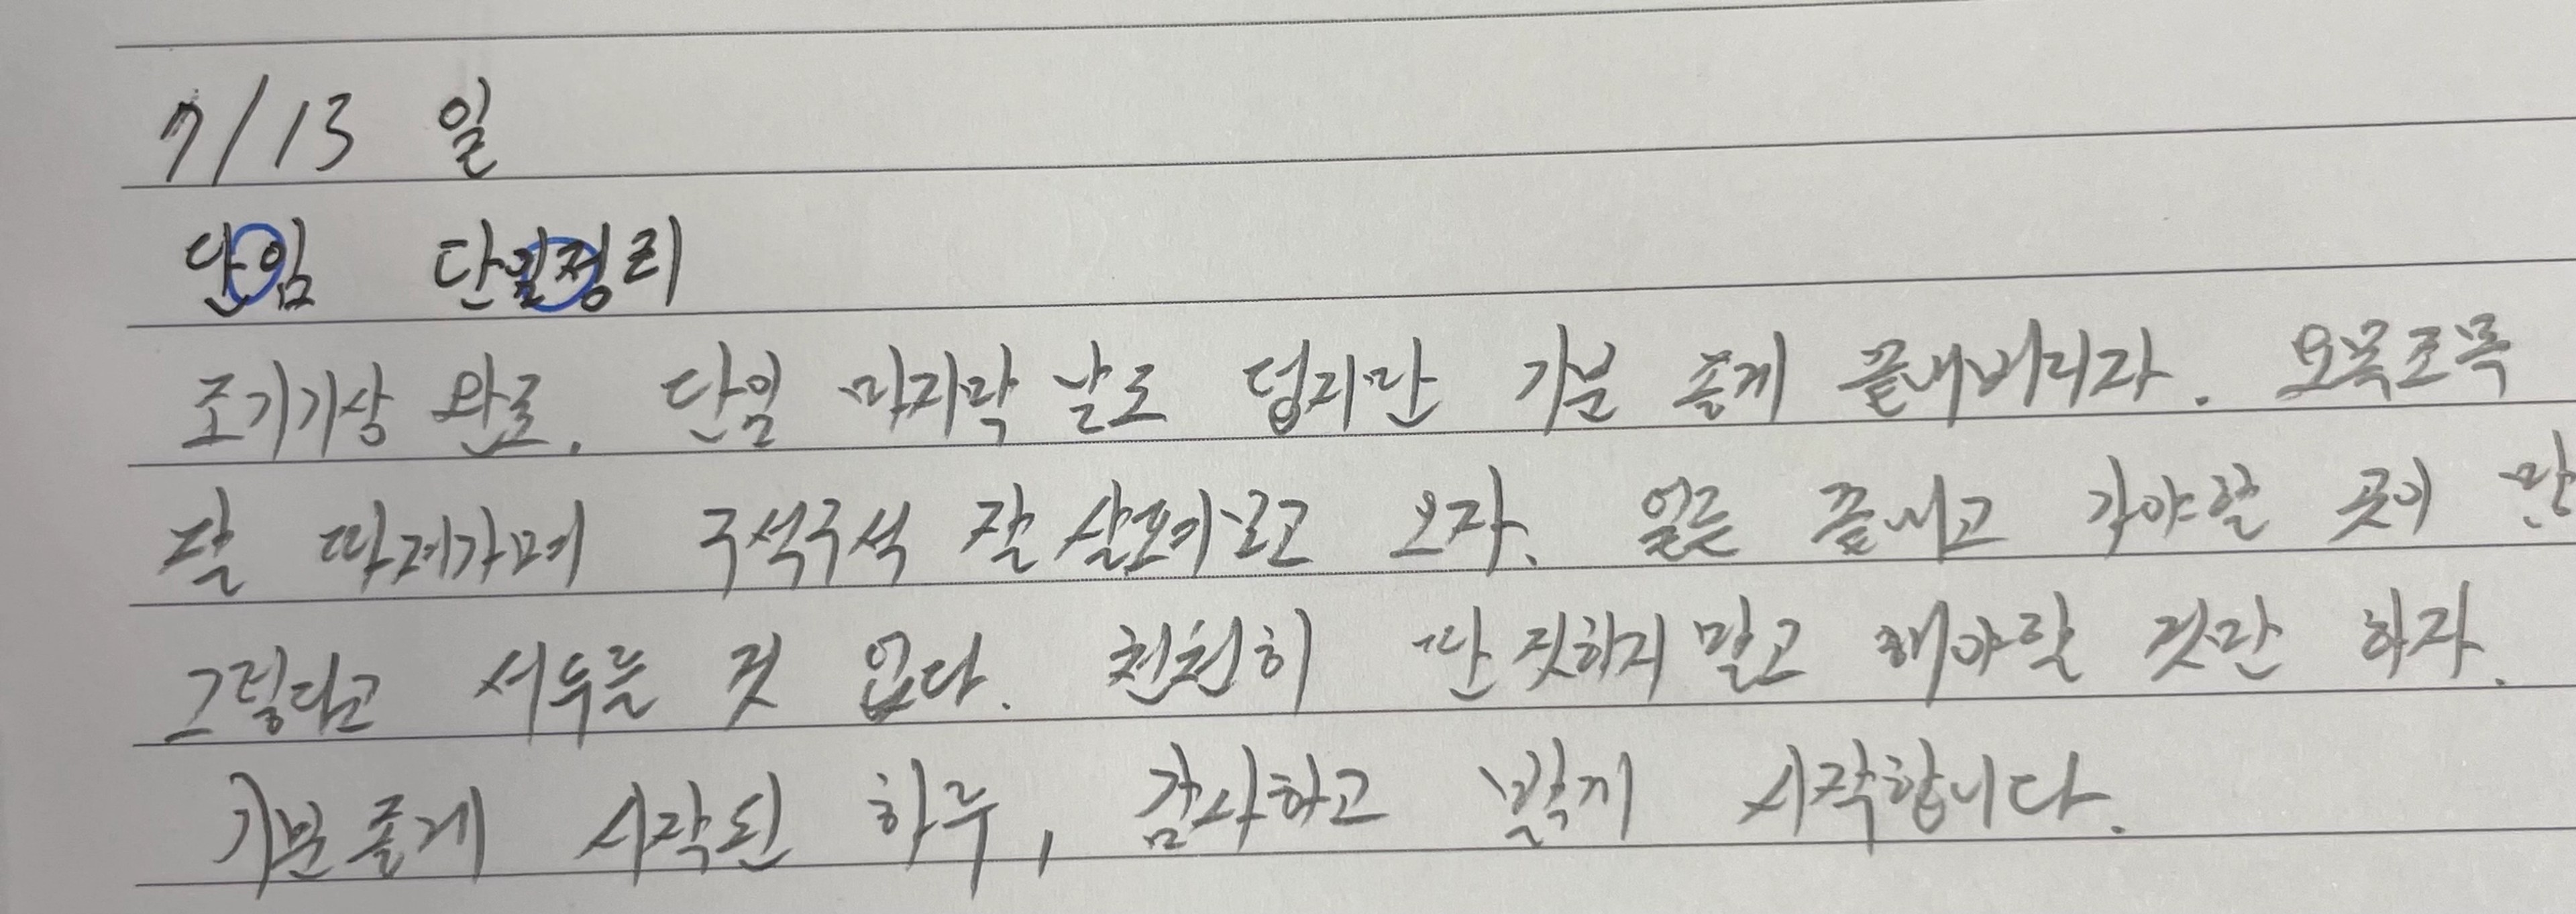 7/13 일
단임 단일정리
조기기상 완료. 단임 마지막 날로 덥지만 기분 좋게 끝내버리자. 오목조목
잘 따져가며 구석구석 잘 살펴보고 오자. 얼른 끝내고 가야할 곳이 많
그렇다고 서두를 것 없다. 천천히 딴 짓하지 말고 해야할 것만 하자.
기분 좋게 시작된 하루, 감사하고 밝게 시작합니다.